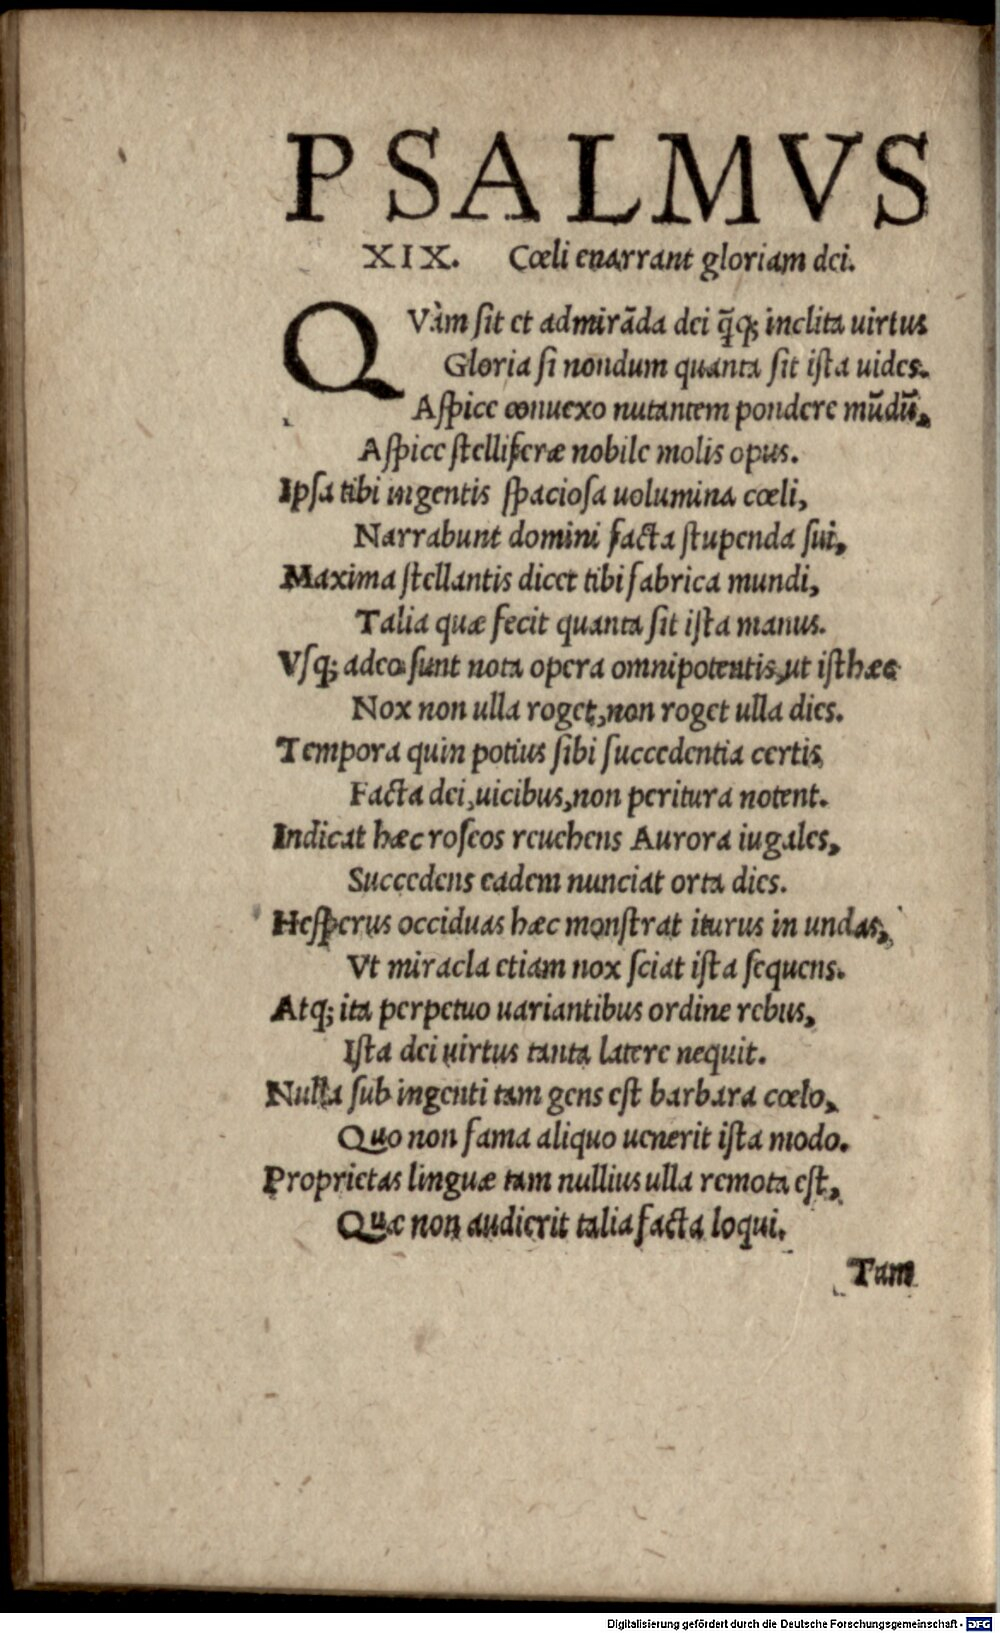 PSALMVS
XIX. Cœli enarrant gloriam dei.
QVàm ſit et admirãda dei q̃q; inclita uirtus
Gloria ſi nondum quanta ſit iſta uides.
Aſpice conuexo nutantem pondere mũdũ,
Aſpice ſtelliferæ nobile molis opus.
Ipſa tibi ingentis ſpacioſa uolumina cœli,
Narrabunt domini facta ſtupenda ſui,
Maxima ſtellantis dicet tibi fabrica mundi,
Talia quæ fecit quanta ſit iſta manus.
Vſq; adeo ſunt nota opera omnipotentis, ut iſthæc
Nox non ulla roget, non roget ulla dies.
Tempora quin potius ſibi ſuccedentia certis,
Facta dei, uicibus, non peritura notent.
Indicat hæc roſeos reuehens Aurora iugales,
Succedens eadem nunciat orta dies.
Heſperus occiduas hæc monſtrat iturus in undas,
Vt miracla etiam nox ſciat iſta ſequens.
Atq; ita perpetuo uariantibus ordine rebus,
Iſta dei uirtus tanta latere nequit.
Nulla ſub ingenti tam gens eſt barbara cœlo,
Quo non fama aliquo uenerit iſta modo.
Proprietas linguæ tam nullius ulla remota eſt,
Quæ non audierit talia facta loqui.
Tam
Digitalisierung gefördert durch die Deutsche Forschungsgemeinschaft - DFG